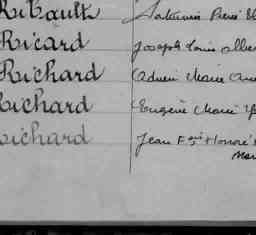 Ribault Saturnin Pierre
Ricard Joseph Louis Albe
Richard Adrien Marie
Richard Eugène Marie
Richard Jean Fçois Honoré